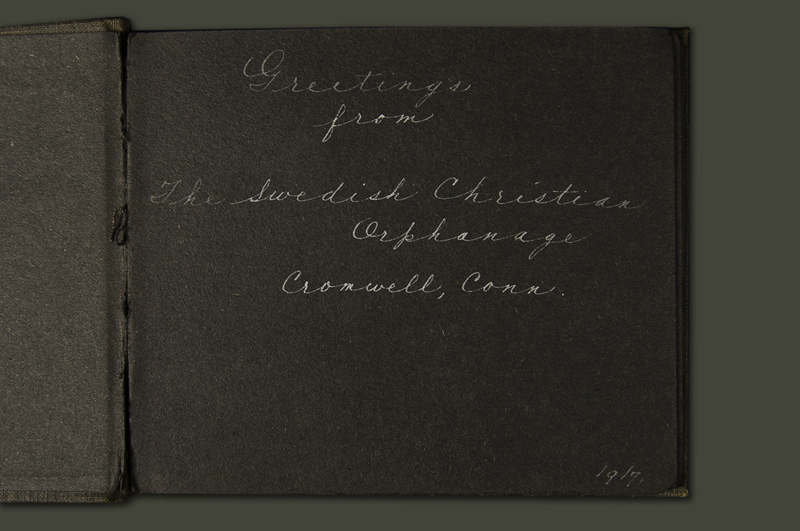 Greetings
from
The Swedish Christian
Orphanage
Cromwell, Conn.
1917.